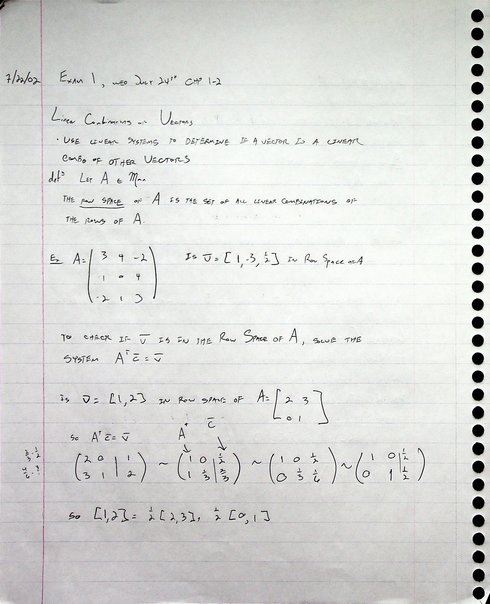 7/22/02 EXAM 1, WED JULY 24TH CHP 1-2
LINEAR COMBINATIONS OF VECTORS
· USE LINEAR SYSTEMS TO DETERMINE IF A VECTOR IS A LINEAR
COMBO OF OTHER VECTORS
def LET A ∈ Mmn
THE ROW SPACE OF A IS THE SET OF ALL LINEAR COMBINATIONS OF
THE ROWS OF A.
Ex A = ( 3 4 -2 IS v̄ = [1, -3, 1/2] IN ROW SPACE OF A
1 0 4
-2 1 3 )
TO CHECK IF v̄ IS IN THE ROW SPACE OF A, SOLVE THE
SYSTEM Aᵀ c̄ = v̄
IS v̄ = [1,2] IN ROW SPACE OF A = [ 2 3
0 1 ]
SO Aᵀ c̄ = v̄ A c̄
( 2 0 | 1 ~ ( 1 0 | 1/2 ~ ( 1 0 1/2 ~ ( 1 0 | 1/2
3 1 | 2 ) 1 1/3 | 2/3 ) 0 1/3 1/6 ) 0 1 | 1/2 )
SO [1,2] = 1/2 [2,3], 1/2 [0,1]